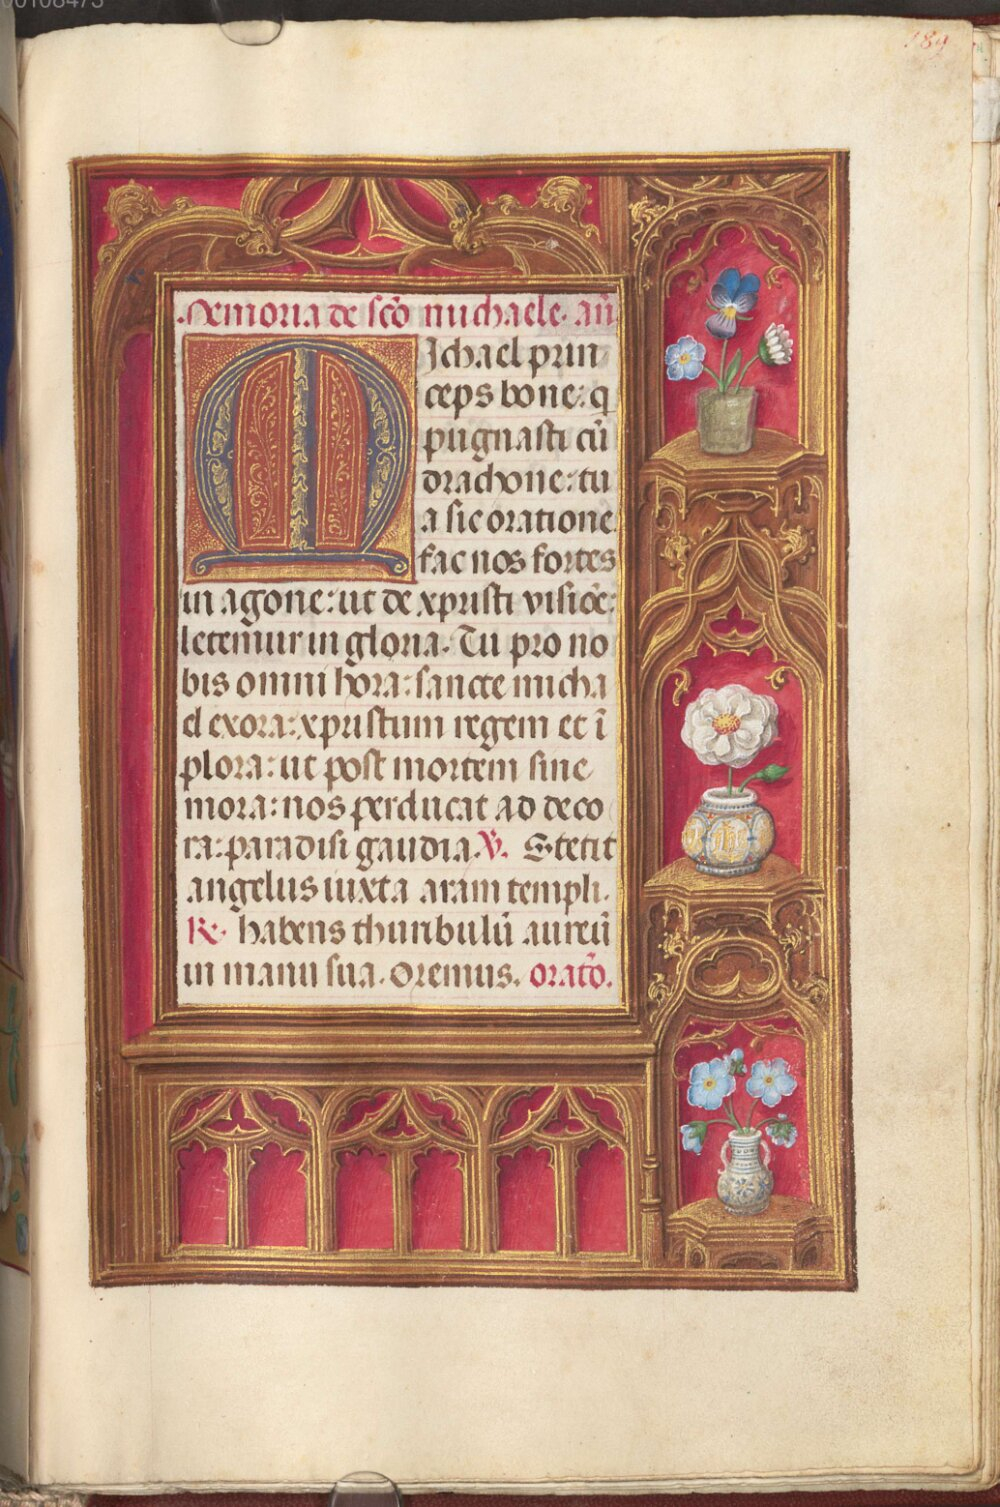 00108473
189
Memoria de sc̄o michaele. an̄
Michael prin
ceps bone: q̄
pugnasti cū
drachone: tu
a sic oratione
fac nos fortes
in agone: ut de xpristi visiōe:
letemur in gloria. Tu pro no
bis omni hora: sancte micha
el exora: xpristum regem et ī
plora: ut post mortem sine
mora: nos perducat ad deco
ra: paradisi gaudia. V̄. Stetit
angelus iuxta aram templi.
R̄. habens thuribulū aureū
in manu sua. Oremus. oratō.